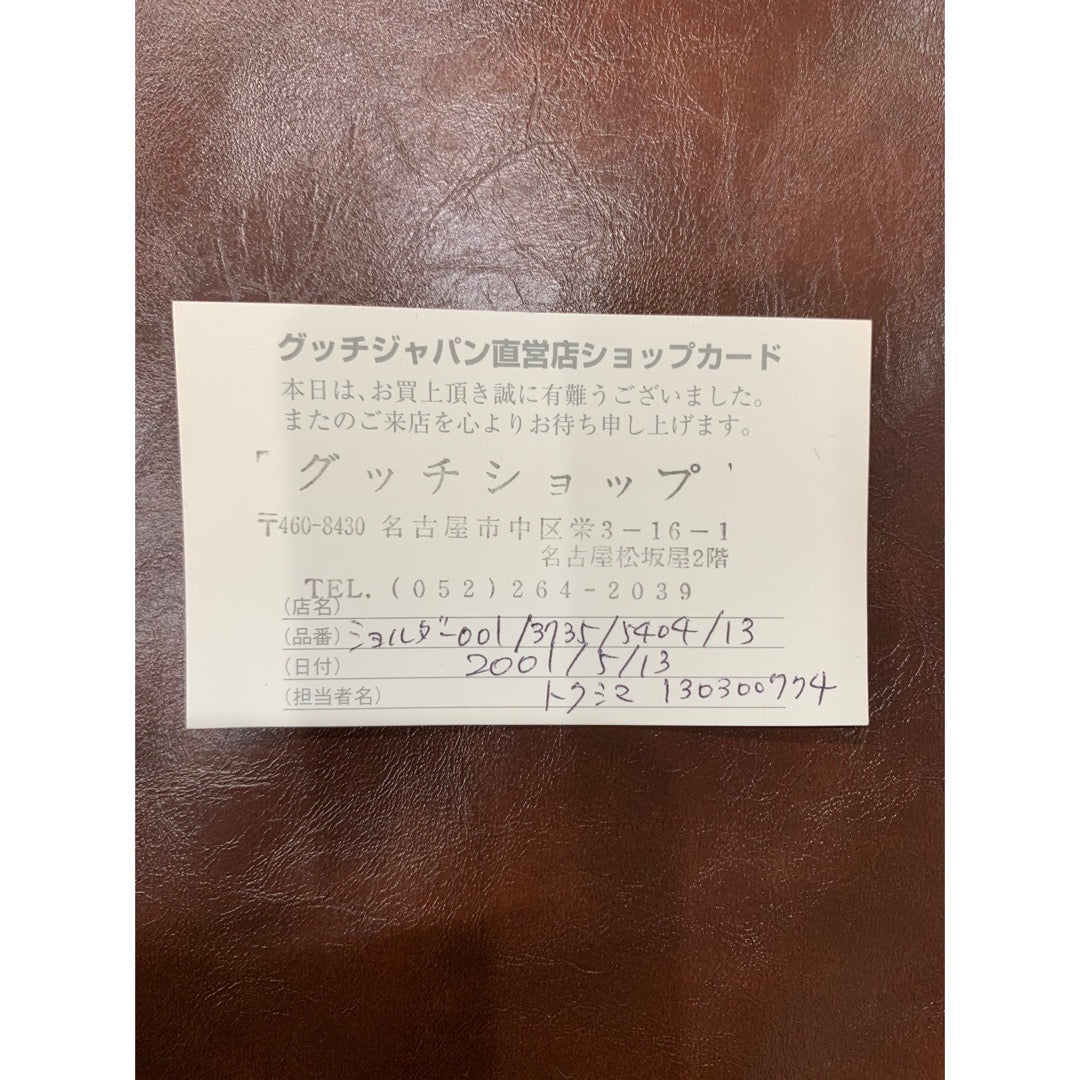 グッチジャパン直営店ショップカード
本日は、お買上頂き誠に有難うございました。
またのご来店を心よりお待ち申し上げます。
グッチショップ
〒460-8430 名古屋市中区栄3-16-1
名古屋松坂屋2階
TEL. (052)264-2039
(店名)
(品番) ショルダー001/3735/5404/13
(日付) 2001/5/13
(担当者名) トクシマ 130300774